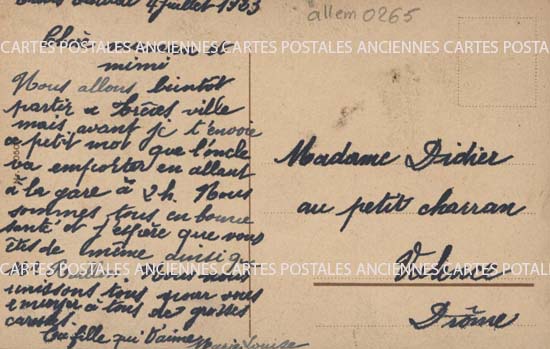 4 Juillet 1923
allem 0265
Chère maman et
mimi
Nous allons bientôt
partir a Trèves ville
mais avant je t'envoie
ce petit mot que l'oncle
va emporter en allant
à la gare à 2h. Nous
sommes tous en bonne
santé et j'espère que vous
êtes de même ainsi q
Nous nous
unissons tous pour vous
envoyer à tous de grosses
caresses.
Ta fille qui t'aime
Marie Louise
Madame Didier
au petit charran
Valence
Drôme
CARTES POSTALES ANCIENNES CARTES POSTALES ANCIENNES CARTES POSTALES
CARTES POSTALES ANCIENNES CARTES POSTALES ANCIENNES CARTES POSTALES